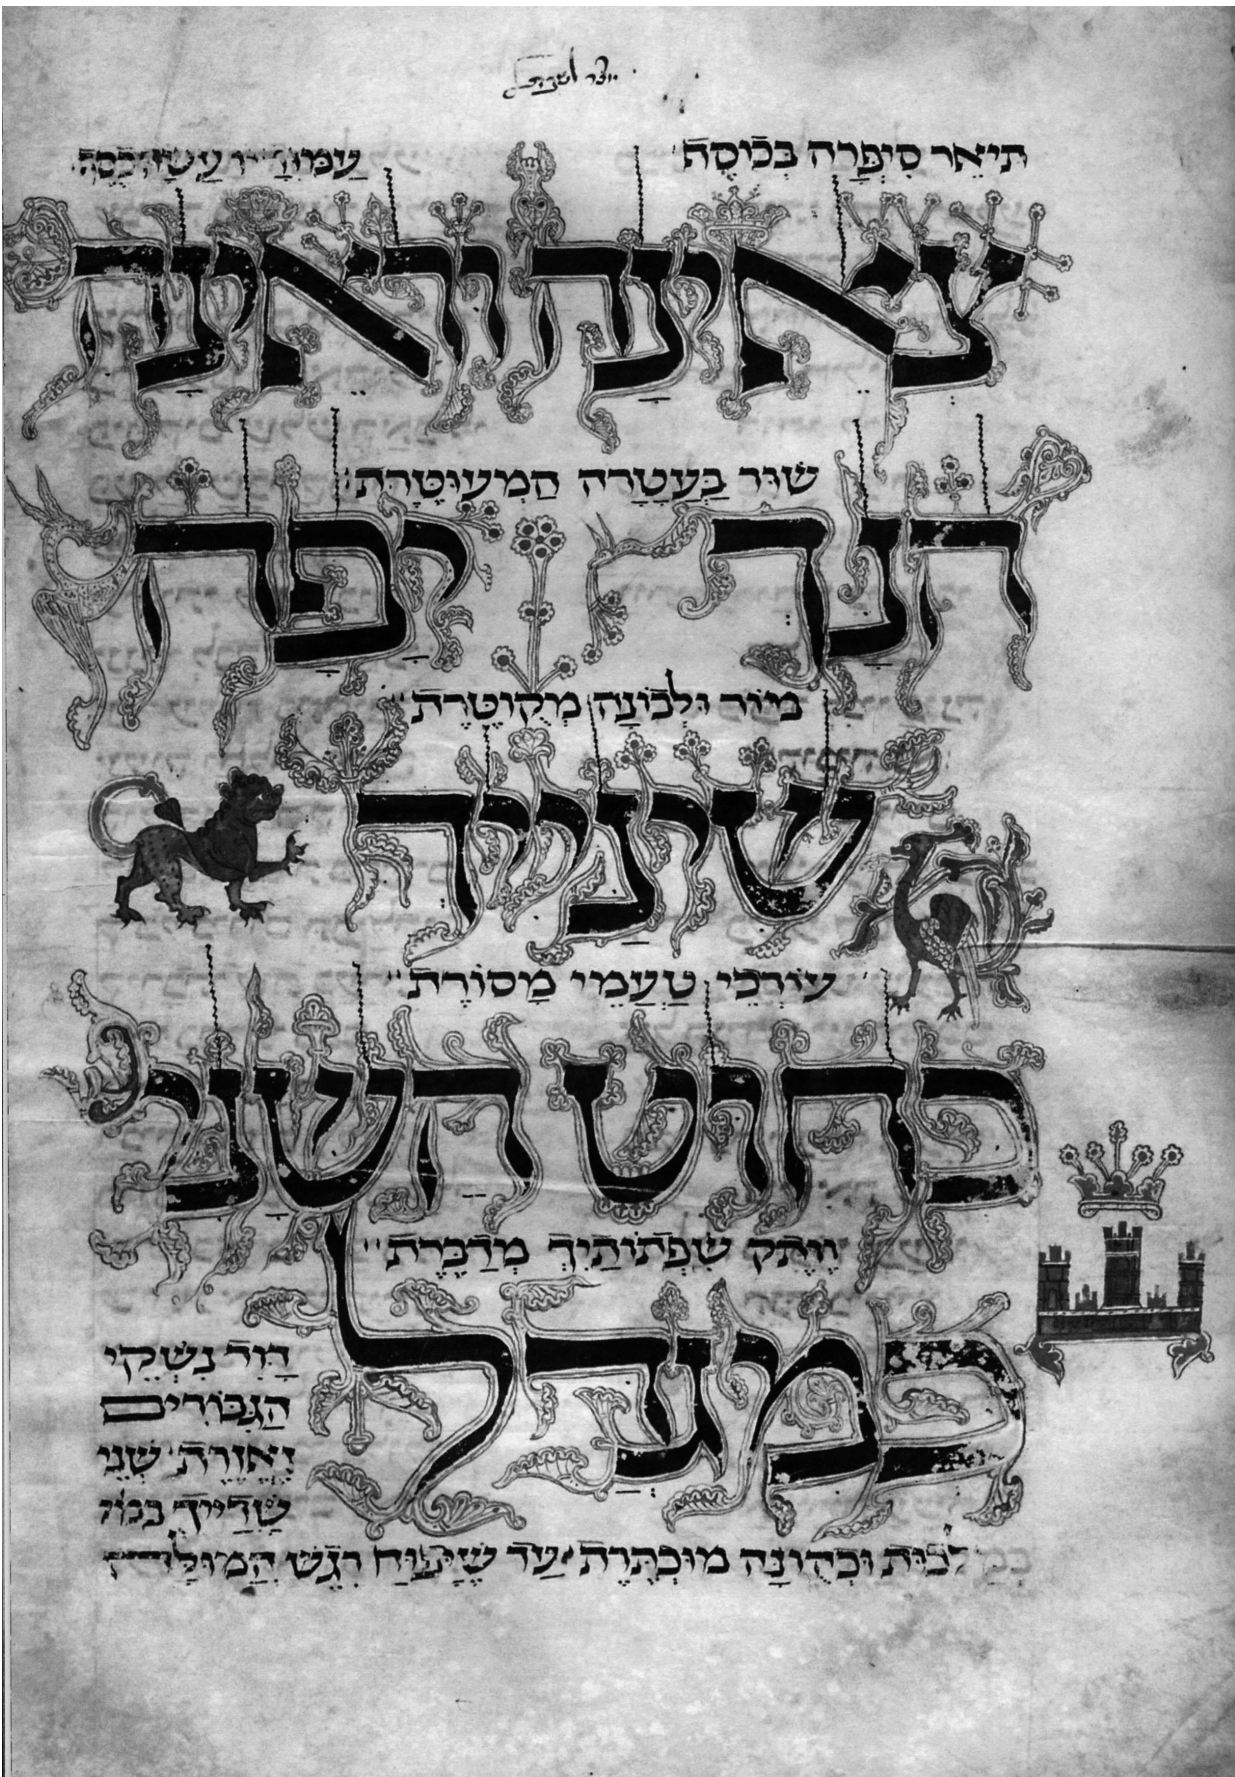 יוצר לשבת
תיאר סיפרה עמודיו עשה כסף
צאינה וראינה
שור בעטרה המעוטרת
הנך יפה
מיור ולבונה מקוטרת
שינייך
עורכי טעמי מסורת
כחוט השני
וותק שפתותיך מדברת
כמגדל
דויד נשקי
הגבורים
נאזרת שני
שדייך כמו
וכהונה מוכתרת עד שיפוח רגש